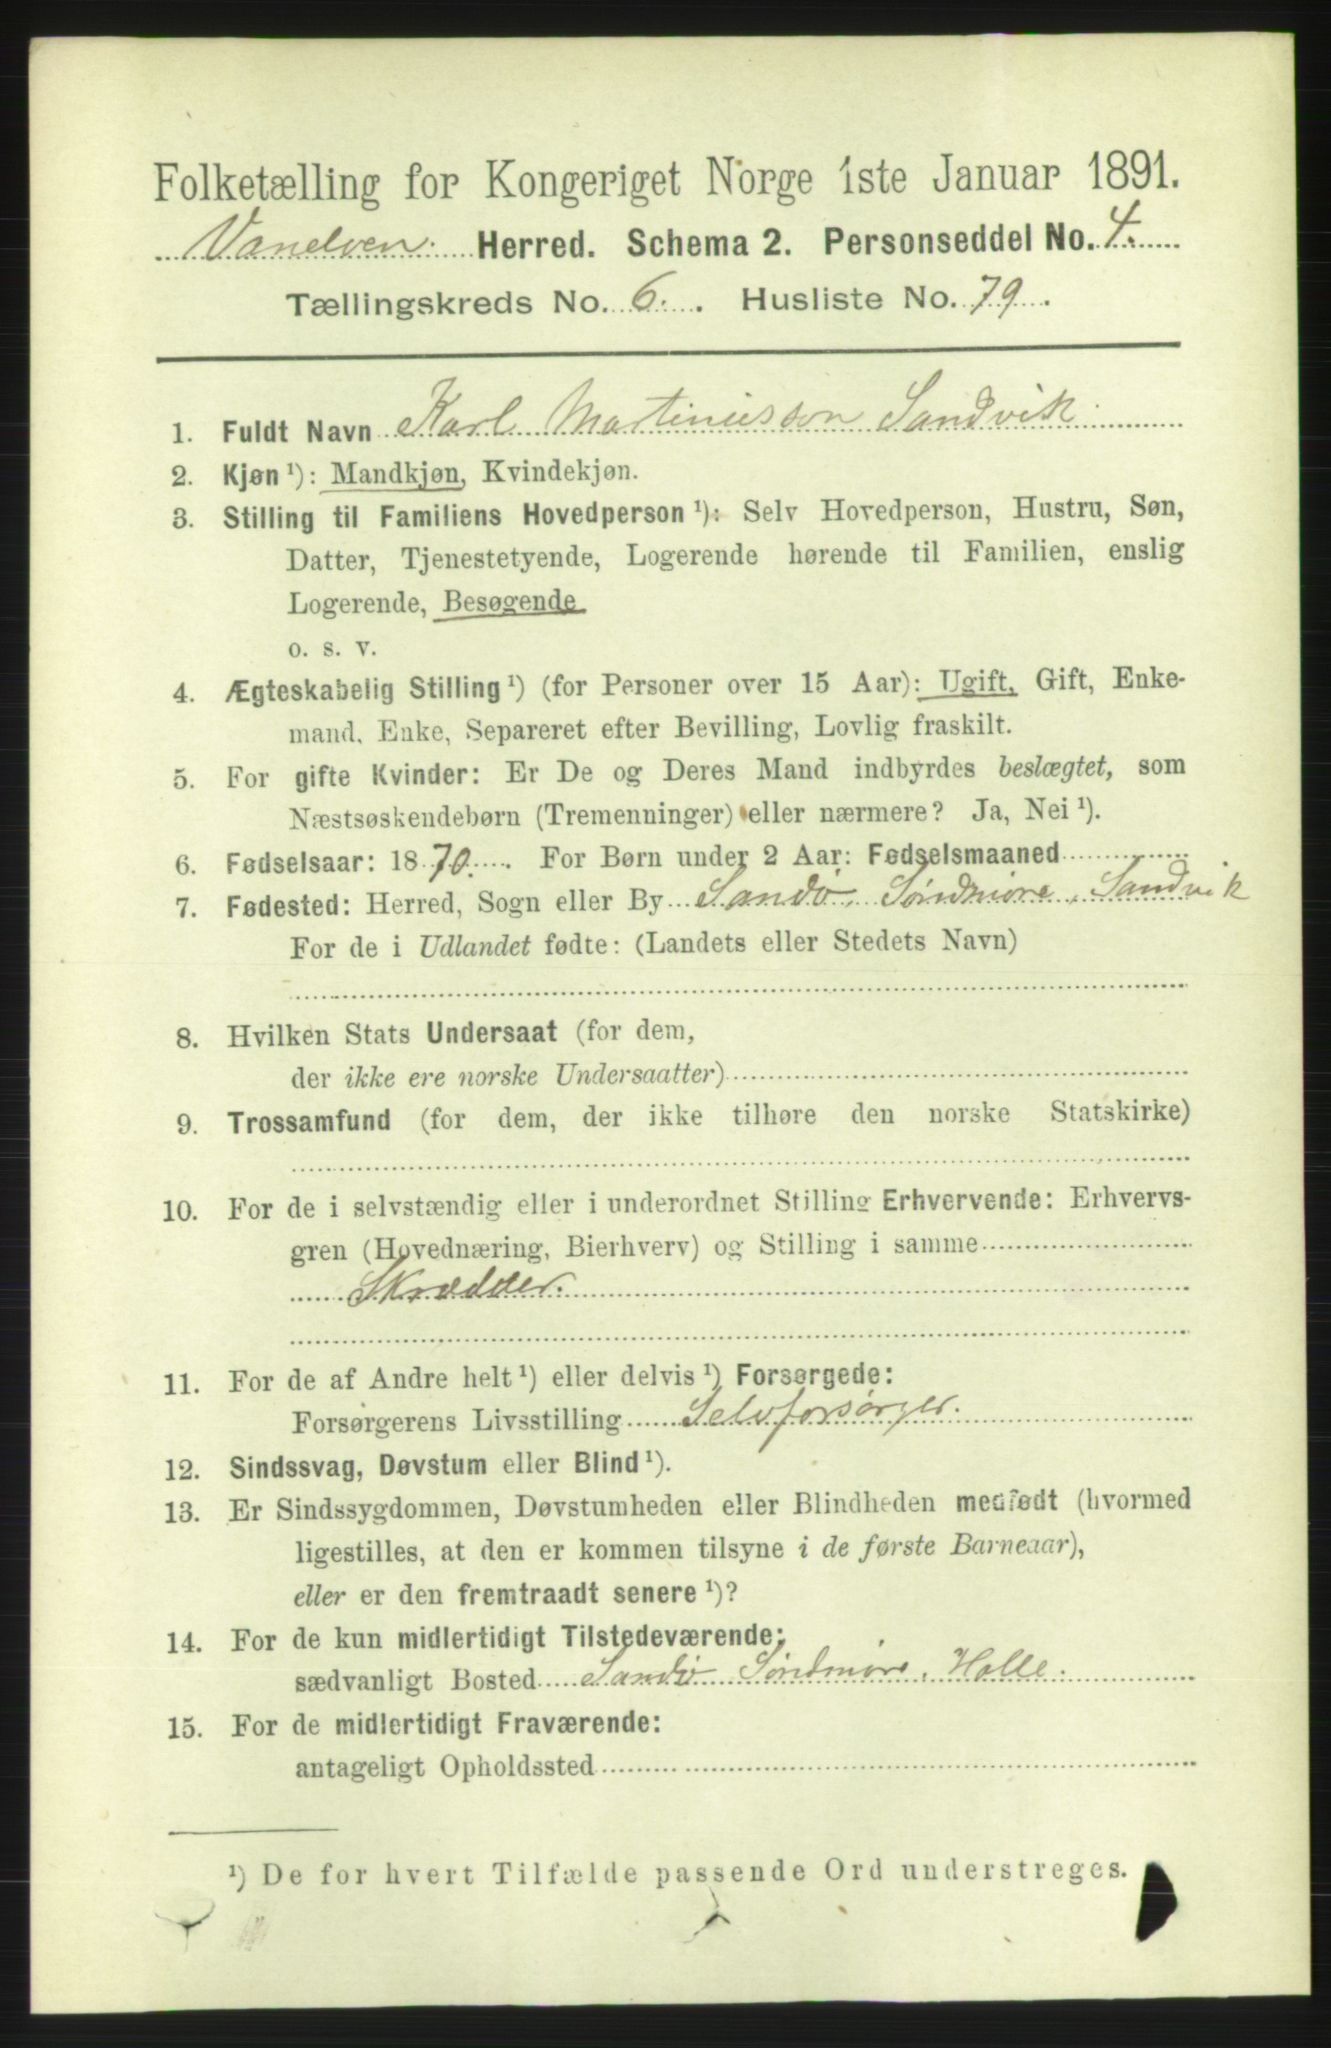 Folketælling for Kongeriget Norge 1ste Januar 1891.
Vanelven. Herred. Schema 2. Personseddel No. 4.
Tællingskreds No. 6. Husliste No. 79.
1. Fuldt Navn Karl Martinusson Sandvik.
2. Kjøn ¹): Mandkjøn, Kvindekjøn.
3. Stilling til Familiens Hovedperson ¹): Selv Hovedperson, Hustru, Søn,
Datter, Tjenestetyende, Logerende hørende til Familien, enslig
Logerende, Besøgende
o. s. v.
4. Ægteskabelig Stilling ¹) (for Personer over 15 Aar): Ugift, Gift, Enke-
mand, Enke, Separeret efter Bevilling, Lovlig fraskilt.
5. For gifte Kvinder: Er De og Deres Mand indbyrdes beslægtet, som
Næstsøskendebørn (Tremenninger) eller nærmere? Ja, Nei ¹).
6. Fødselsaar: 1870. For Børn under 2 Aar: Fødselsmaaned
7. Fødested: Herred, Sogn eller By Sandö, Söndmöre, Sandvik
For de i Udlandet fødte: (Landets eller Stedets Navn)
8. Hvilken Stats Undersaat (for dem,
der ikke ere norske Undersaatter)
9. Trossamfund (for dem, der ikke tilhøre den norske Statskirke)
10. For de i selvstændig eller i underordnet Stilling Erhvervende: Erhvervs-
gren (Hovednæring, Bierhverv) og Stilling i samme
Skrædder.
11. For de af Andre helt ¹) eller delvis ¹) Forsørgede:
Forsørgerens Livsstilling Selvforsörger.
12. Sindssvag, Døvstum eller Blind ¹).
13. Er Sindssygdommen, Døvstumheden eller Blindheden medfødt (hvormed
ligestilles, at den er kommen tilsyne i de første Barneaar),
eller er den fremtraadt senere ¹)?
14. For de kun midlertidigt Tilstedeværende:
sædvanligt Bosted Sandö Söndmöre, Holle.
15. For de midlertidigt Fraværende:
antageligt Opholdssted
¹) De for hvert Tilfælde passende Ord understreges.